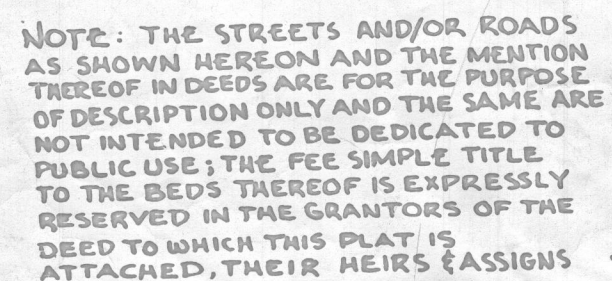 NOTE: THE STREETS AND/OR ROADS
AS SHOWN HEREON AND THE MENTION
THEREOF IN DEEDS ARE FOR THE PURPOSE
OF DESCRIPTION ONLY AND THE SAME ARE
NOT INTENDED TO BE DEDICATED TO
PUBLIC USE; THE FEE SIMPLE TITLE
TO THE BEDS THEREOF IS EXPRESSLY
RESERVED IN THE GRANTORS OF THE
DEED TO WHICH THIS PLAT IS
ATTACHED, THEIR HEIRS & ASSIGNS